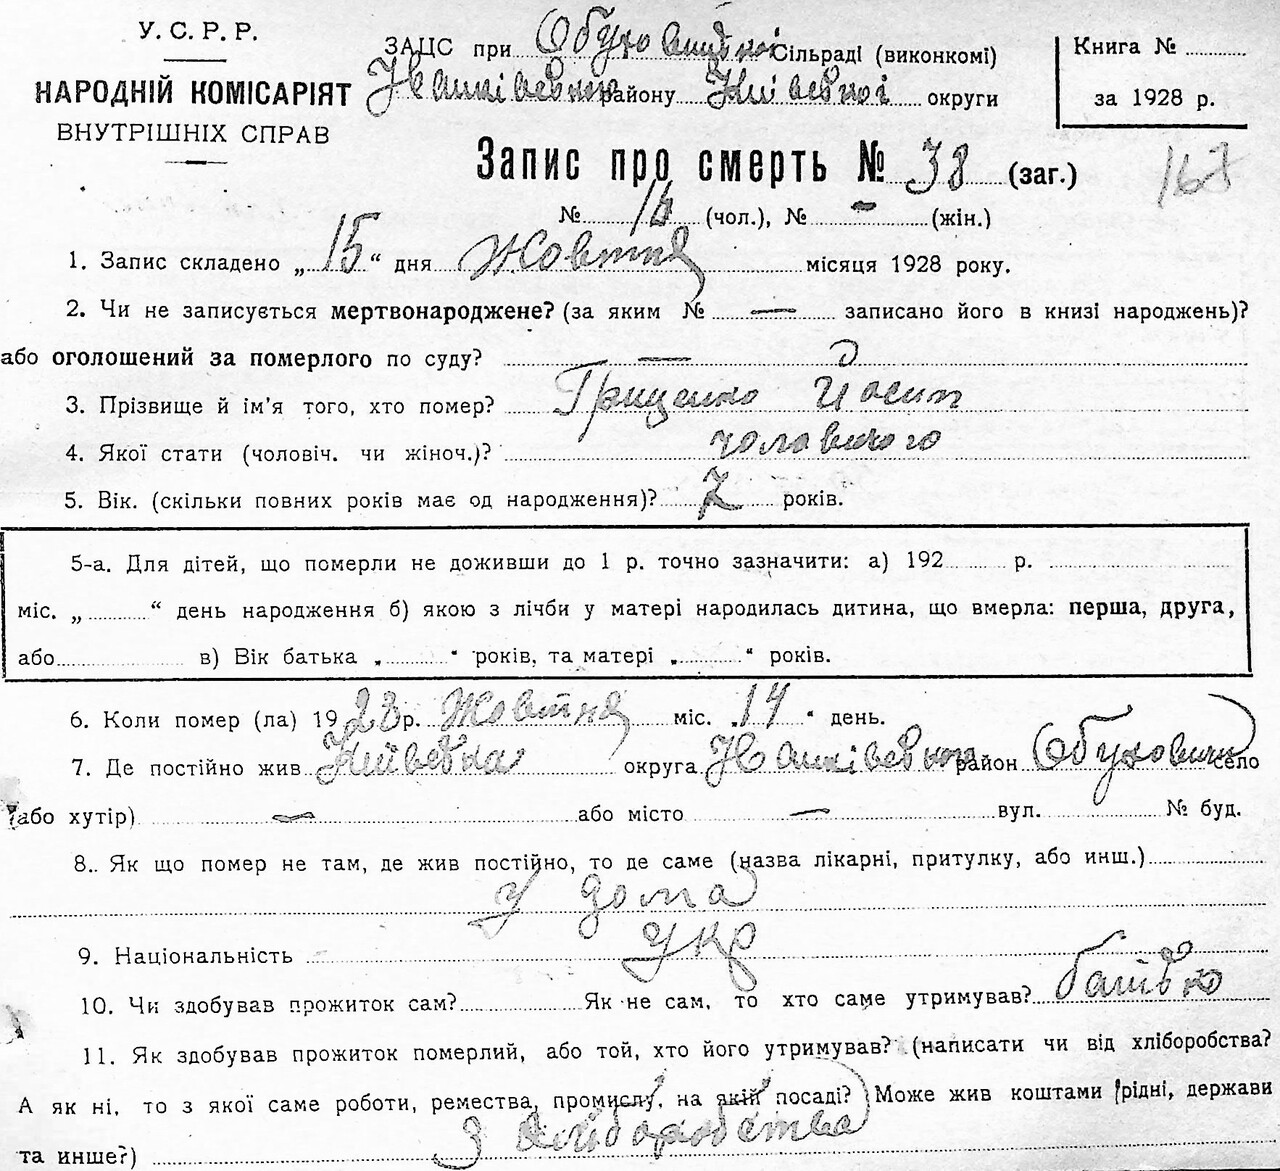 У. С. Р. Р.
НАРОДНІЙ КОМІСАРІЯТ
ВНУТРІШНІХ СПРАВ
ЗАЦС при Обуховицької Сільраді (виконкомі)
Іванківської району Київської округи
Книга №
за 1928 р.
Запис про смерть № 38 (заг.)
168
№ 16 (чол.), № — (жін.)
1. Запис складено „ 15 “ дня Жовтня місяця 1928 року.
2. Чи не записується мертвонароджене? (за яким № — записано його в книзі народжень)?
або оголошений за померлого по суду? —
3. Прізвище й ім'я того, хто помер? Грищенко Йосип
4. Якої стати (чоловіч. чи жіноч.)? чоловічого
5. Вік. (скільки повних років має од народження)? 7 років.
5-а. Для дітей, що померли не доживши до 1 р. точно зазначити: а) 192 р.
міс. „ “ день народження б) якою з лічби у матері народилась дитина, що вмерла: перша, друга,
або в) Вік батька „ “ років, та матері „ “ років.
6. Коли помер (ла) 1928 р. Жовтня міс. „14 “ день.
7. Де постійно жив Київська округа Іванківської район Обуховичі село
(або хутір) — або місто — вул. № буд.
8. Як що помер не там, де жив постійно, то де саме (назва лікарні, притулку, або инш.)
у дома
9. Національність укр
10. Чи здобував прожиток сам? Як не сам, то хто саме утримував? батько
11. Як здобував прожиток померлий, або той, хто його утримував? (написати чи від хліборобства?
А як ні, то з якої саме роботи, ремества, промислу, на якій посаді? Може жив коштами рідні, держави
та инше?) З хліборобства